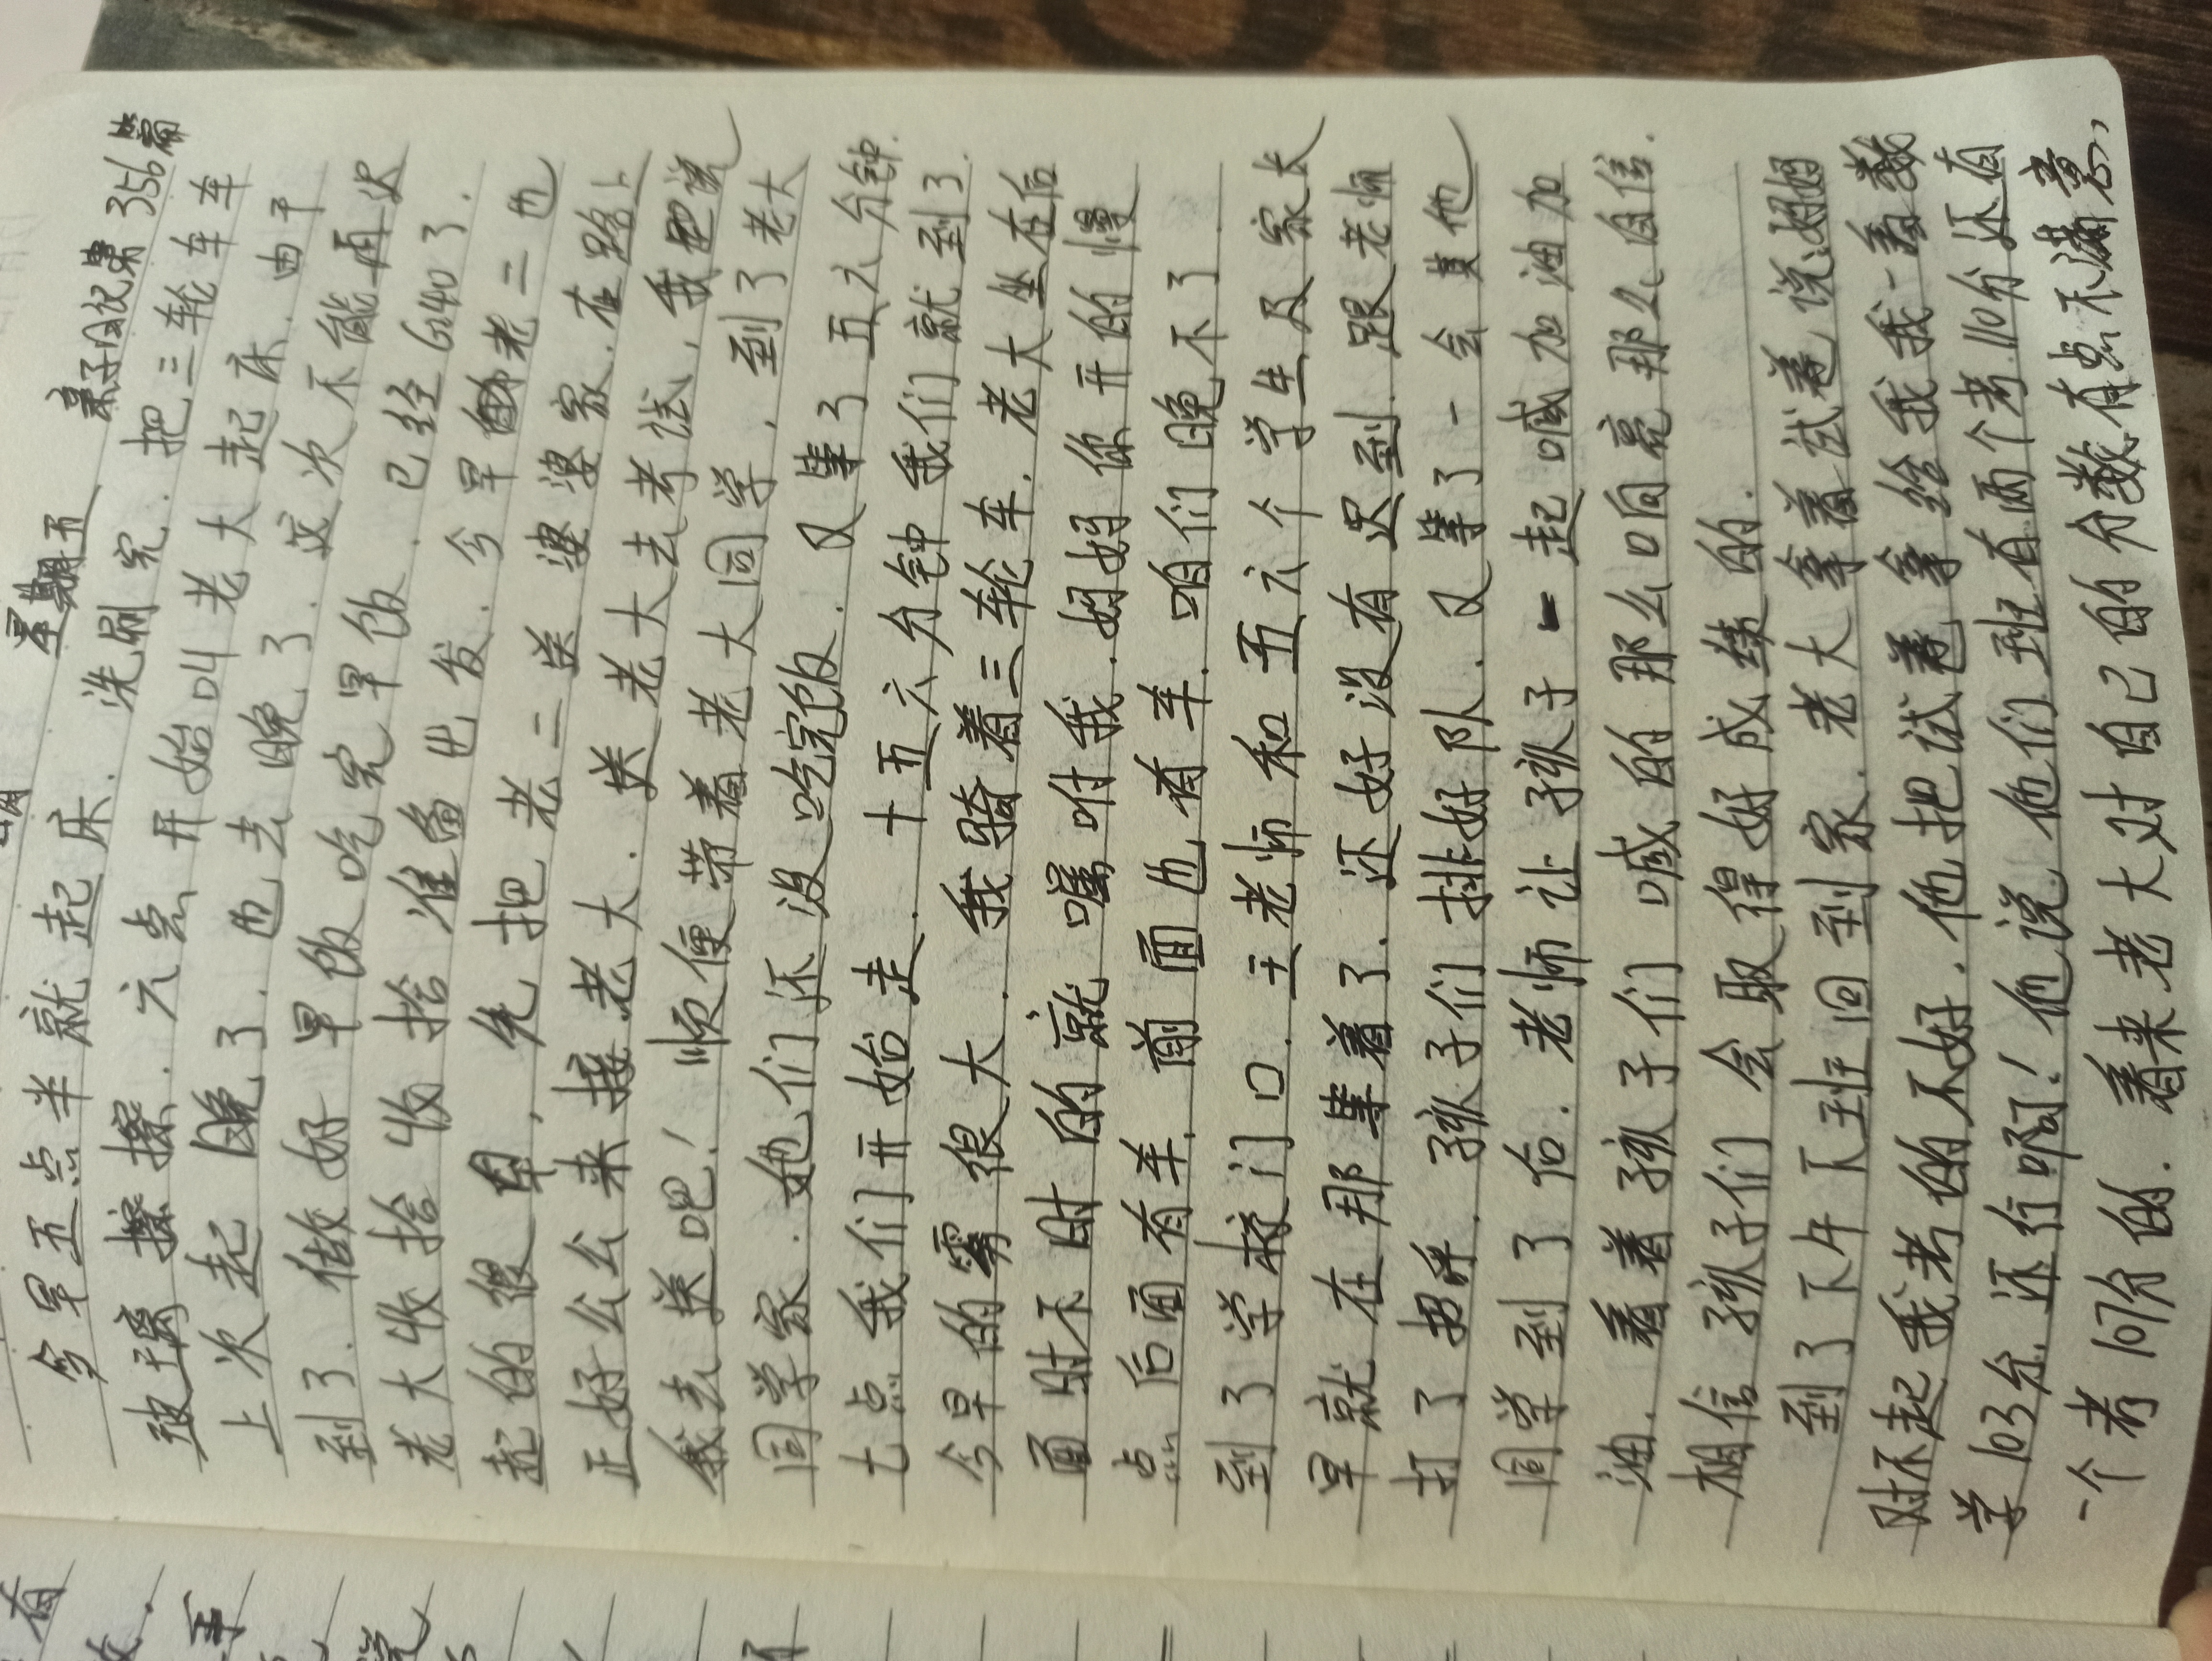 星期五 亲子日记第356篇
今早五点半就起床.洗刷完.把三轮车车
玻璃擦擦.六点开始叫老大起床.由于
上次起晚了.也去晚了.这次不能再迟
到了.做好早饭吃完早饭.已经6:40了.
老大收拾收拾准备出发.今早老二也
起的很早,先把老二送婆婆家.在路上
正好公公来接老大.送老大去考试,我说
我去送吧!顺便带着老大同学,到了老大
同学家.她们还没吃完饭.又等了五六分钟.
七点我们开始走.十五六分钟我们就到了.
今早的雾很大.我骑着三轮车.老大坐在后
面时不时的就嘱咐我.妈妈你开的慢
点.后面有车.前面也有车.咱们晚不了.
到了学校门口.王老师和五六个学生及家长
早就在那等着了.还好没有迟到.跟老师
打了招呼.孩子们排好队.又等了一会其他
同学到了后.老师让孩子一起喊加油加
油.看着孩子们喊的那么响亮那么自信.
相信孩子们会取得好成绩的.
到了下午下班回到家.老大拿着试卷说:妈妈
对不起我考的不好.他把试卷拿给我我一看数
学103分.还行啊!他说他们班有两个考110分还有
一个考107分的.看来老大对自己的分数有点不满意,